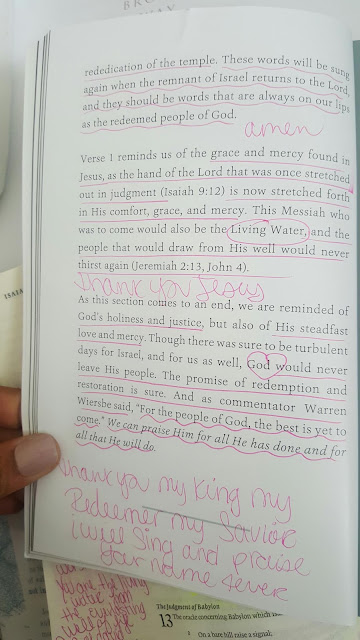 rededication of the temple. These words will be sung
again when the remnant of Israel returns to the Lord,
and they should be words that are always on our lips
as the redeemed people of God.
amen
Verse 1 reminds us of the grace and mercy found in
Jesus, as the hand of the Lord that was once stretched
out in judgment (Isaiah 9:12) is now stretched forth
in His comfort, grace, and mercy. This Messiah who
was to come would also be the Living Water, and the
people that would draw from His well would never
thirst again (Jeremiah 2:13, John 4).
Thank you Jesus
As this section comes to an end, we are reminded of
God's holiness and justice, but also of His steadfast
love and mercy. Though there was sure to be turbulent
days for Israel, and for us as well, God would never
leave His people. The promise of redemption and
restoration is sure. And as commentator Warren
Wiersbe said, "For the people of God, the best is yet to
come." We can praise Him for all He has done and for
all that He will do.
Thank you my King my
Redeemer my Savior
I will Sing and praise
your name 4ever
The Judgment of Babylon
13 The oracle concerning Babylon which
2 On a bare hill raise a signal;